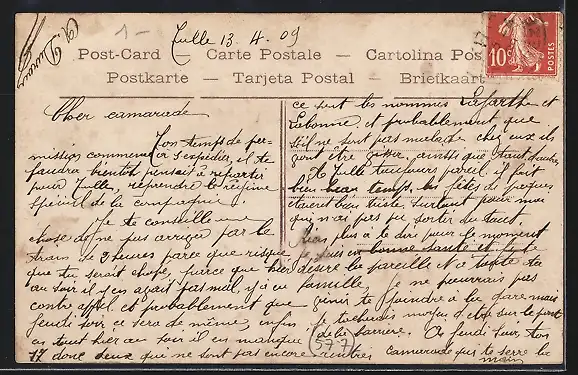 Tulle 13. 4. 09
1 -
Post-Card — Carte Postale — Cartolina Pos
Postkarte — Tarjeta Postal — Briefkaart
10c
POSTES
Cher camarade
Ton temps de per-
mission commence à s'expédier, il te
faudra bientôt penser à repartir
pour Tulle, reprendre le régime
spécial de la compagnie.
Je te conseille une
chose de ne pas arriver par le
train de 3 heures parce que risque
que tu serait chopé, parce que hier
au soir il y en avait pas mal, y a eu
contre appel et probablement que
jeudi soir ce sera de même, enfin
en tout hier au soir il en manque
17 donc deux qui ne sont pas encore rentrés
ce sont les nommés Lafarthe et
Labonne et probablement que
s'il ne sont pas malade chez eux ils
vont être
A Tulle toujours pareil il fait
bien beau temps, les fêtes de paques
bien triste surtout pour moi
qui n'ai pas pu sortir du tout.
Rien plus à te dire pour le moment
je suis en bonne santé et toute
désire la pareille et à toute ta
famille, Je ne pourrais pas
venir te joindre à la gare mais
je tiendrais moyen d'être sur le pont
de la barrière. A jeudi soir, ton
camarade qui te serre la
main
577